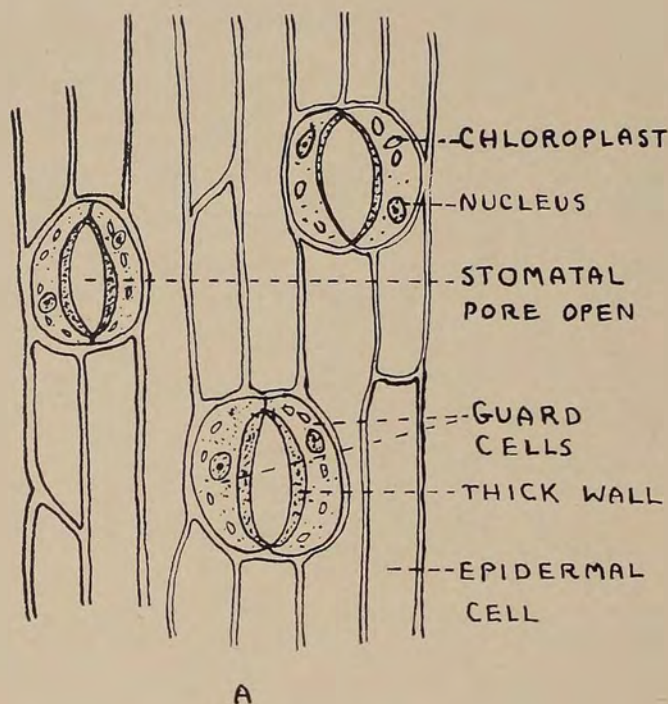 CHLOROPLAST
NUCLEUS
STOMATAL
PORE OPEN
GUARD
CELLS
THICK WALL
EPIDERMAL
CELL
A